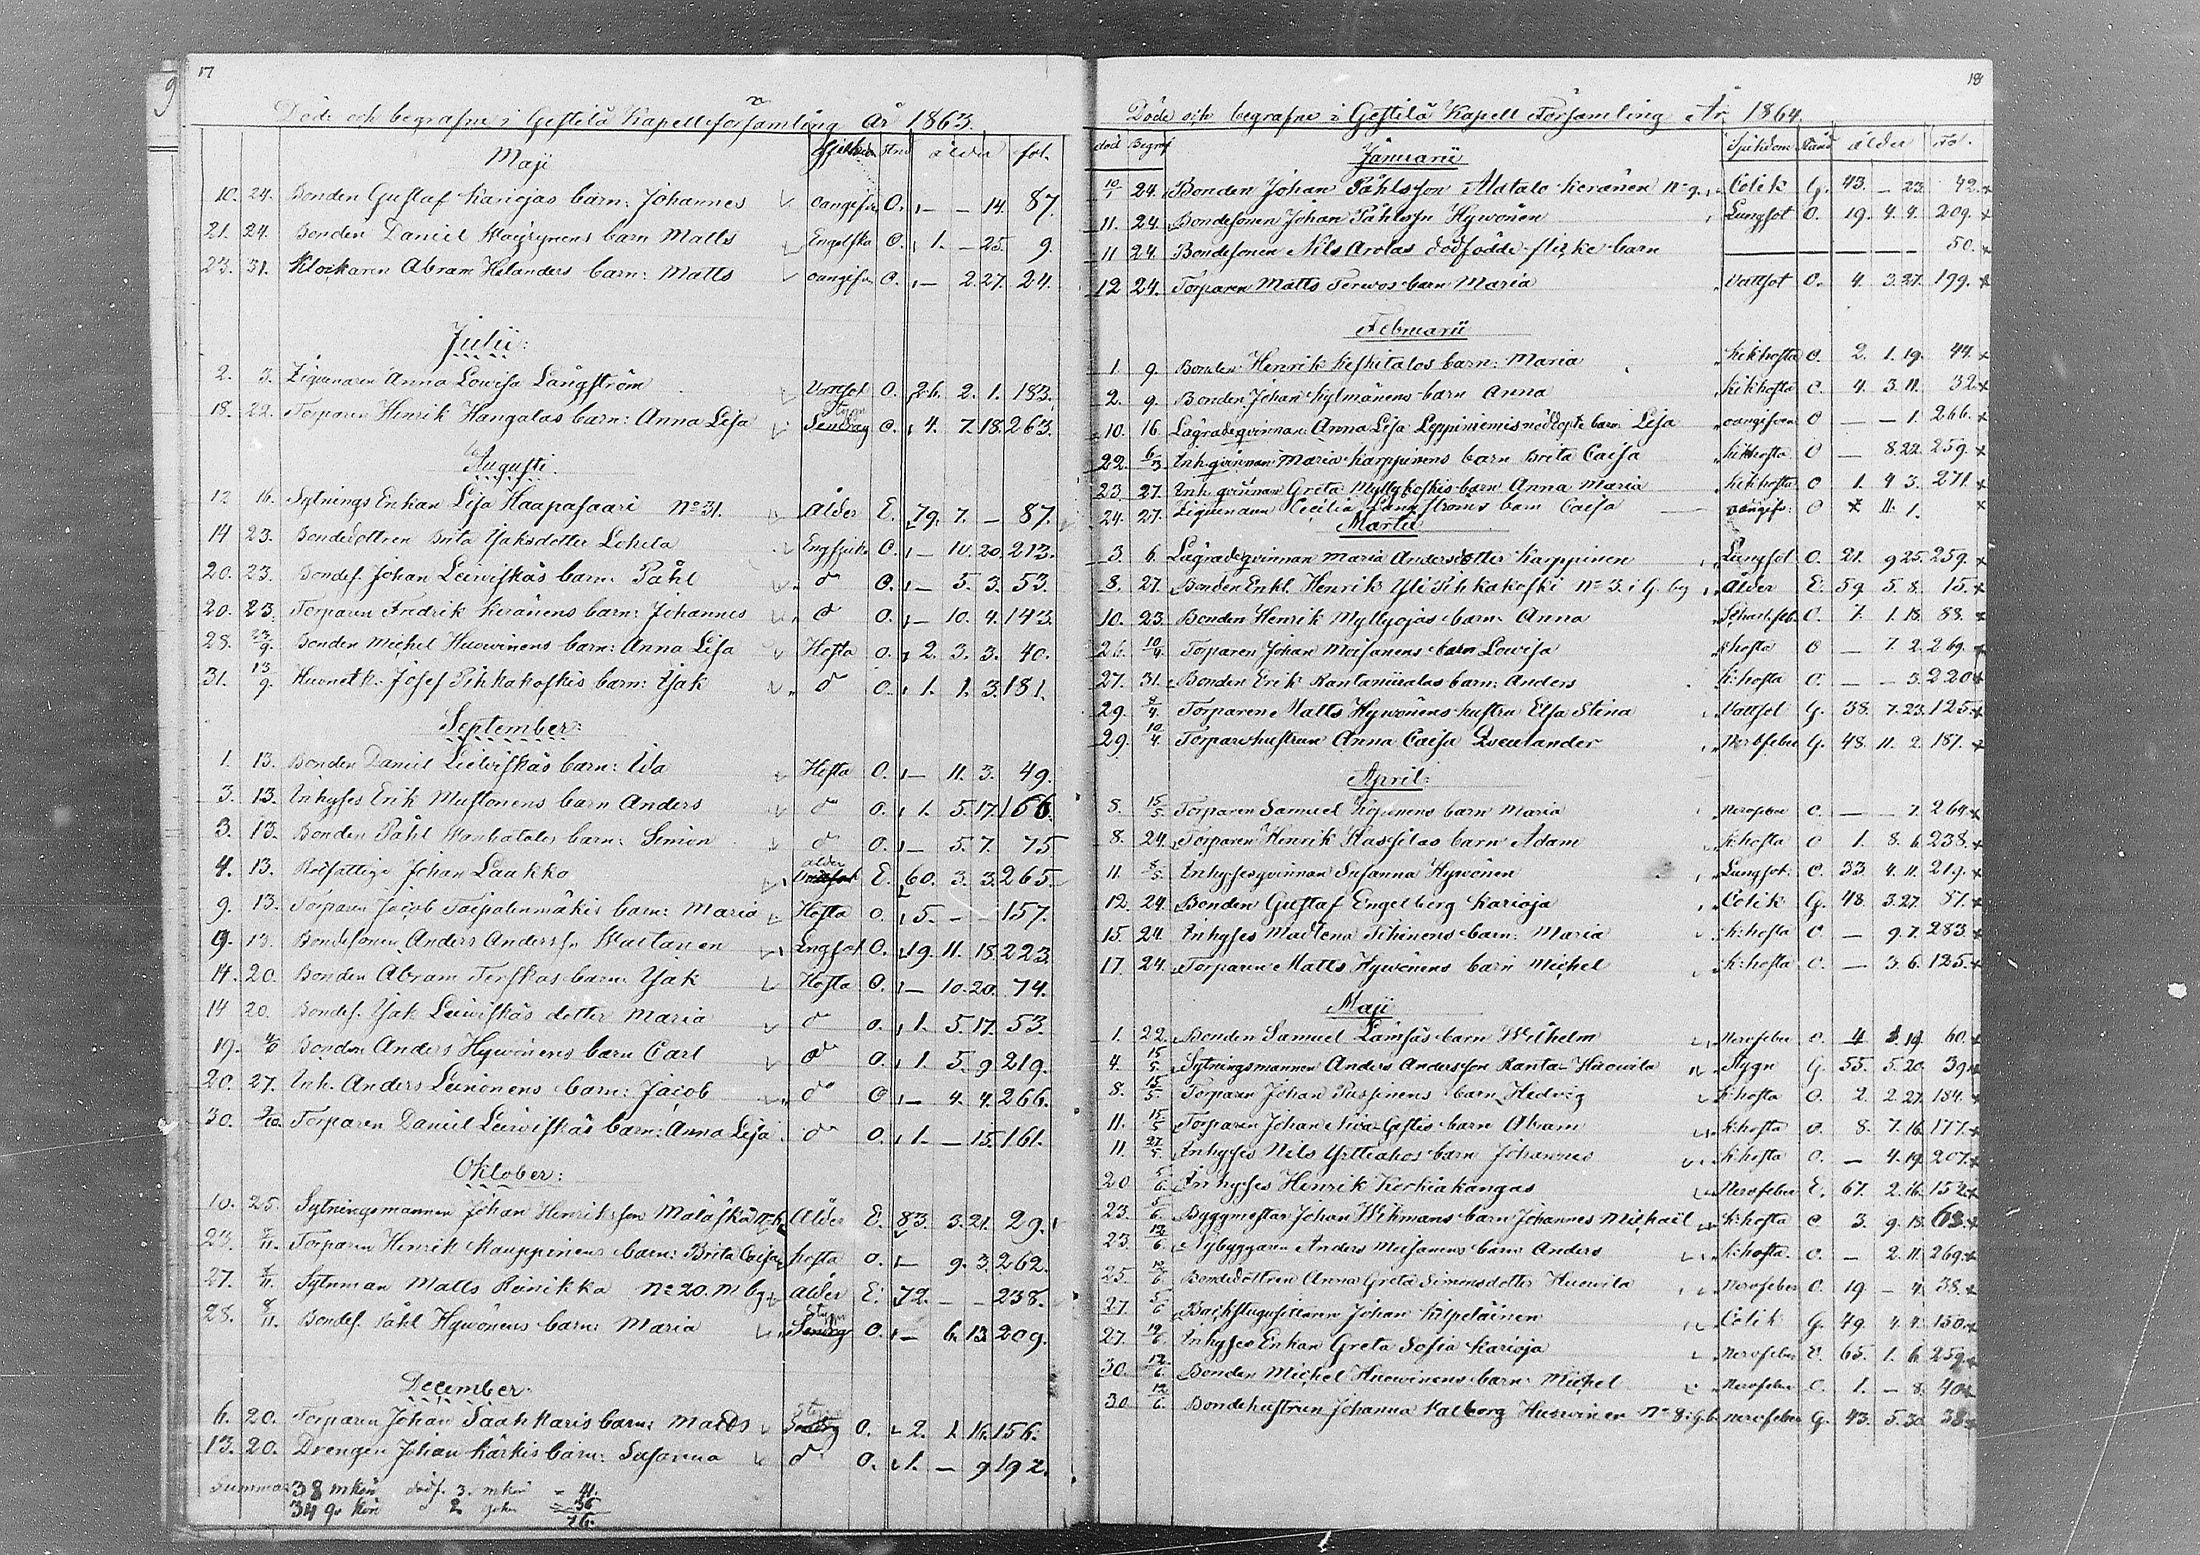 17
Döde och begrafne i Gestilä Kapellsförsamling År 1863.
Sjukdom Stnd ålder fol.
Maji
10. 24. Bonden Gustaf Kariojas barn: Johannes oangifven O. — — 14. 87.
21. 24. Bonden Daniel barn Matts Engelska O. 1. — 25. 9.
23. 31. Klockaren Abram Helanders barn: Matts oangifv O. — 2. 27. 24.
Julii:
2. 3. Zigenaren Anna Lowisa Långström Vattsot O. 26. 2. 1. 183.
18. 22. Torparen Henrik Kangalas barn: Anna Lisa O. 4. 7. 18. 263.
Augusti.
12 16. Sytnings Enkan Lisa Haapasaari No 31. Ålder E. 79. 7. — 87.
14 23. Bondedottren Brita Isaksdotter Leheta Eng O. — 10. 20. 213.
20. 23. Bondes. Johan Leiwiskäs barn: Påhl do O. — 5. 3. 53.
20. 23. Torparen Fredrik Keränens barn: Johannes do O. — 10. 4. 143.
28. 23/9. Bonden Michel Huowinens barn: Anna Lisa Hosta O. 2. 3. 3. 40.
31. 13/9. Josef Pihkakoskis barn: Isak do O. 1. 1. 3. 181.
September:
1. 13. Bonden Daniel Leiwiskäs barn: Ida Hosta O. — 11. 3. 49.
3. 13. Inhyses Erik Mustonens barn Anders do O. 1. 5. 17. 166.
3. 13. Bonden Påhl Wanhatalos barn: Simon do O. — 5. 7. 75
4. 13. Rotfattige Johan Laakko ålder E. 60. 3. 3. 265.
9. 13. Torparen Jacob Taipalenmäkis barn: Maria Hosta O. 5. — — 157.
9. 13. Bondesonen Anders Anderss:n Wartanen Lngsot O. 19. 11. 18. 223.
14. 20. Bonden Abram Terskas barn: Isak Hosta O. — 10. 20. 74.
14 20. Bondes. Isak Leiwiskäs dotter Maria do O. 1. 5. 17. 53.
19. Bonden Anders Hywönens barn Carl do O. 1. 5. 9. 219.
20. 27. Inh. Anders Leinonens barn: Jacob do O — 4. 4. 266.
30. Torparen Daniel Leiwiskäs barn: Anna Lisa do O. 1. — 15. 161.
Oktober:
10. 25. Sytningsmannen Johan Henriksson Mäläskä Ålder E. 83. 3. 21. 29.
23. 8/11. Torparen Henrik Kauppinens barn: Brita Caisa hosta O. — 9. 3. 262.
27. 8/11. Sytnman Matts Reinikka No 20. M bg ålder E. 72. — — 238.
28. 8/11. Bondes. Påhl Hywönens barn: Maria O. — 6. 13. 209.
December:
6. 20. Torparen Johan Saahkaris barn: Matts O. 2. 1. 16. 156.
13. 20. Drengen Johan Kärkis barn: Susanna do O. 1. — 9. 192.
Summa: 38 mkön dödf. 3. mkön = 41.
34 q. kön 2 qvkön = 36
76.
18
Döde och begrafne i Gestilä Kapell Församling År 1864.
död Begraf Sjukdom Stånd ålder Fol.
Januarii
10/1 24. Bonden Johan Påhlsson Alatalo Keränen No 9. Colik G. 43. — 23. 42.
11. 24. Bondesonen Johan Påhlss:n Hywönen Lungsot O. 19. 4. 4. 209.
11 24. Bondesonen Nils Arolas dödfödde flicke barn — — — 50.
12 24. Torparen Matts Terwos barn Maria Vattsot O. 4. 3. 27. 199.
Februarii
1. 9. Bonden Henrik Keskitalos barn: Maria Kikhosta O. 2. 1. 19. 44.
2. 9. Bonden Johan Kylmänens barn Anna Kikhosta O. 4. 3. 11. 32
10. 16. Lägradeqvinnan Anna Lisa Leppiniemis nöddöpte barn Lisa oangifven O — — 1. 266.
22. 6/3 Inh. qvinnan Maria Karppinens barn Brita Caisa Kikhosta O — 8. 22. 259.
23. 27. Inh. qvinnan Greta Myllykoskis barn Anna Maria Kikhosta O 1. 4 3. 271.
24. 27. Zigenaren Cecilia Långströms barn Caisa oangifv: O 11. 1.
Martii
3. 6. Lägradeqvinnan Maria Andersdotter Karppinen Lungsot O. 21. 9 25. 259.
8. 27. Bonden Enkl. Henrik Yli Pihkakoski No 3. i G. by Ålder E. 59 5. 8. 15.
10. 23. Bonden Henrik Myllyojas barn: Anna Scharl.feb. O. 7. 1. 18. 88.
26. 10/4. Torparen Johan Moisanens barn Lowisa k:hosta O — 7. 2. 269.
27. 31. Bonden Erik Rantaniialas barn: Anders K:hosta O. — — 3. 220
29. 4. Torparen Matts Hywönens hustru Elsa Stina Vattsot G. 38. 7. 23. 125.
29. 10/4. Torparehustrun Anna Caisa Nervfeber G. 48. 11. 2. 187.
April:
8. 15/5 Torparen Samuel barn Maria O — — 7. 264.
8. 24. Torparen Henrik Hassilas barn Adam K:hosta O 1. 8. 6. 238.
11. 8/5. Inhysesqvinnan Susanna Hywönen Lungsot. O. 33. 4. 11. 219.
12. 24. Bonden Gustaf Engelberg Karioja Colik G. 48. 3. 27. 87.
15. 24. Inhyses Madlena Tihinens barn: Maria K:hosta O. — 9. 7. 283
17. 24. Torparen Matts Hywönens barn Michel K:hosta O. — 3. 6. 125.
Maji
1. 22. Bonden Samuel Lämsäs barn Wilhelm Nervfeber O. 4 19 60.
4. 15/5. Sytningsmannen Anders Andersson Ranta-Huowila Stygn G. 55. 5. 20. 39
8. 15/5. Torparen Johan Passinens barn Hedvig K:hosta O. 2. 2 27. 184.
11. 15/5 Torparen Johan barn Abram K:hosta O. 8. 7. 16. 177.
11. 27/5. Inhyses Nils Yrttiahos barn Johannes K:hosta O. — 4. 19. 207.
20 5/6. Inhyses Henrik Korkiakangas Nervfeber E. 67. 2. 16. 152.
23. 5/6. Byggmestar Johan Wikmans barn Johannes Michaël K:hosta O 3. 9. 18. 63.
23. 12/6. Nybyggaren Anders Moisanens barn Anders K:hosta. O. — 2. 11. 269.
25. 12/6. Bondedottren Anna Greta Simonsdotter Huowila Nervfeber O. 19 — 4. 38.
27. 5/6 Backstugusittaren Johan Kilpeläinen Colik G. 49. 4. 4. 150.
27. 19/6. Inhyses Enkan Greta Sofia Karioja Nervfeber E. 65. 1. 6. 259.
30. 12/6. Bonden Michel Huowinens barn: Michel Nervfeber O. 1. — 8. 40
30 12/6. Bondehustrun Johanna Walborg Huowinen No 8. G. b. nervfeber G. 43. 5. 30. 38